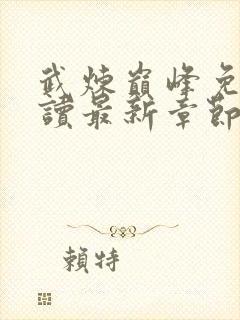 武煉巔峰免
讀最新章節
賴特